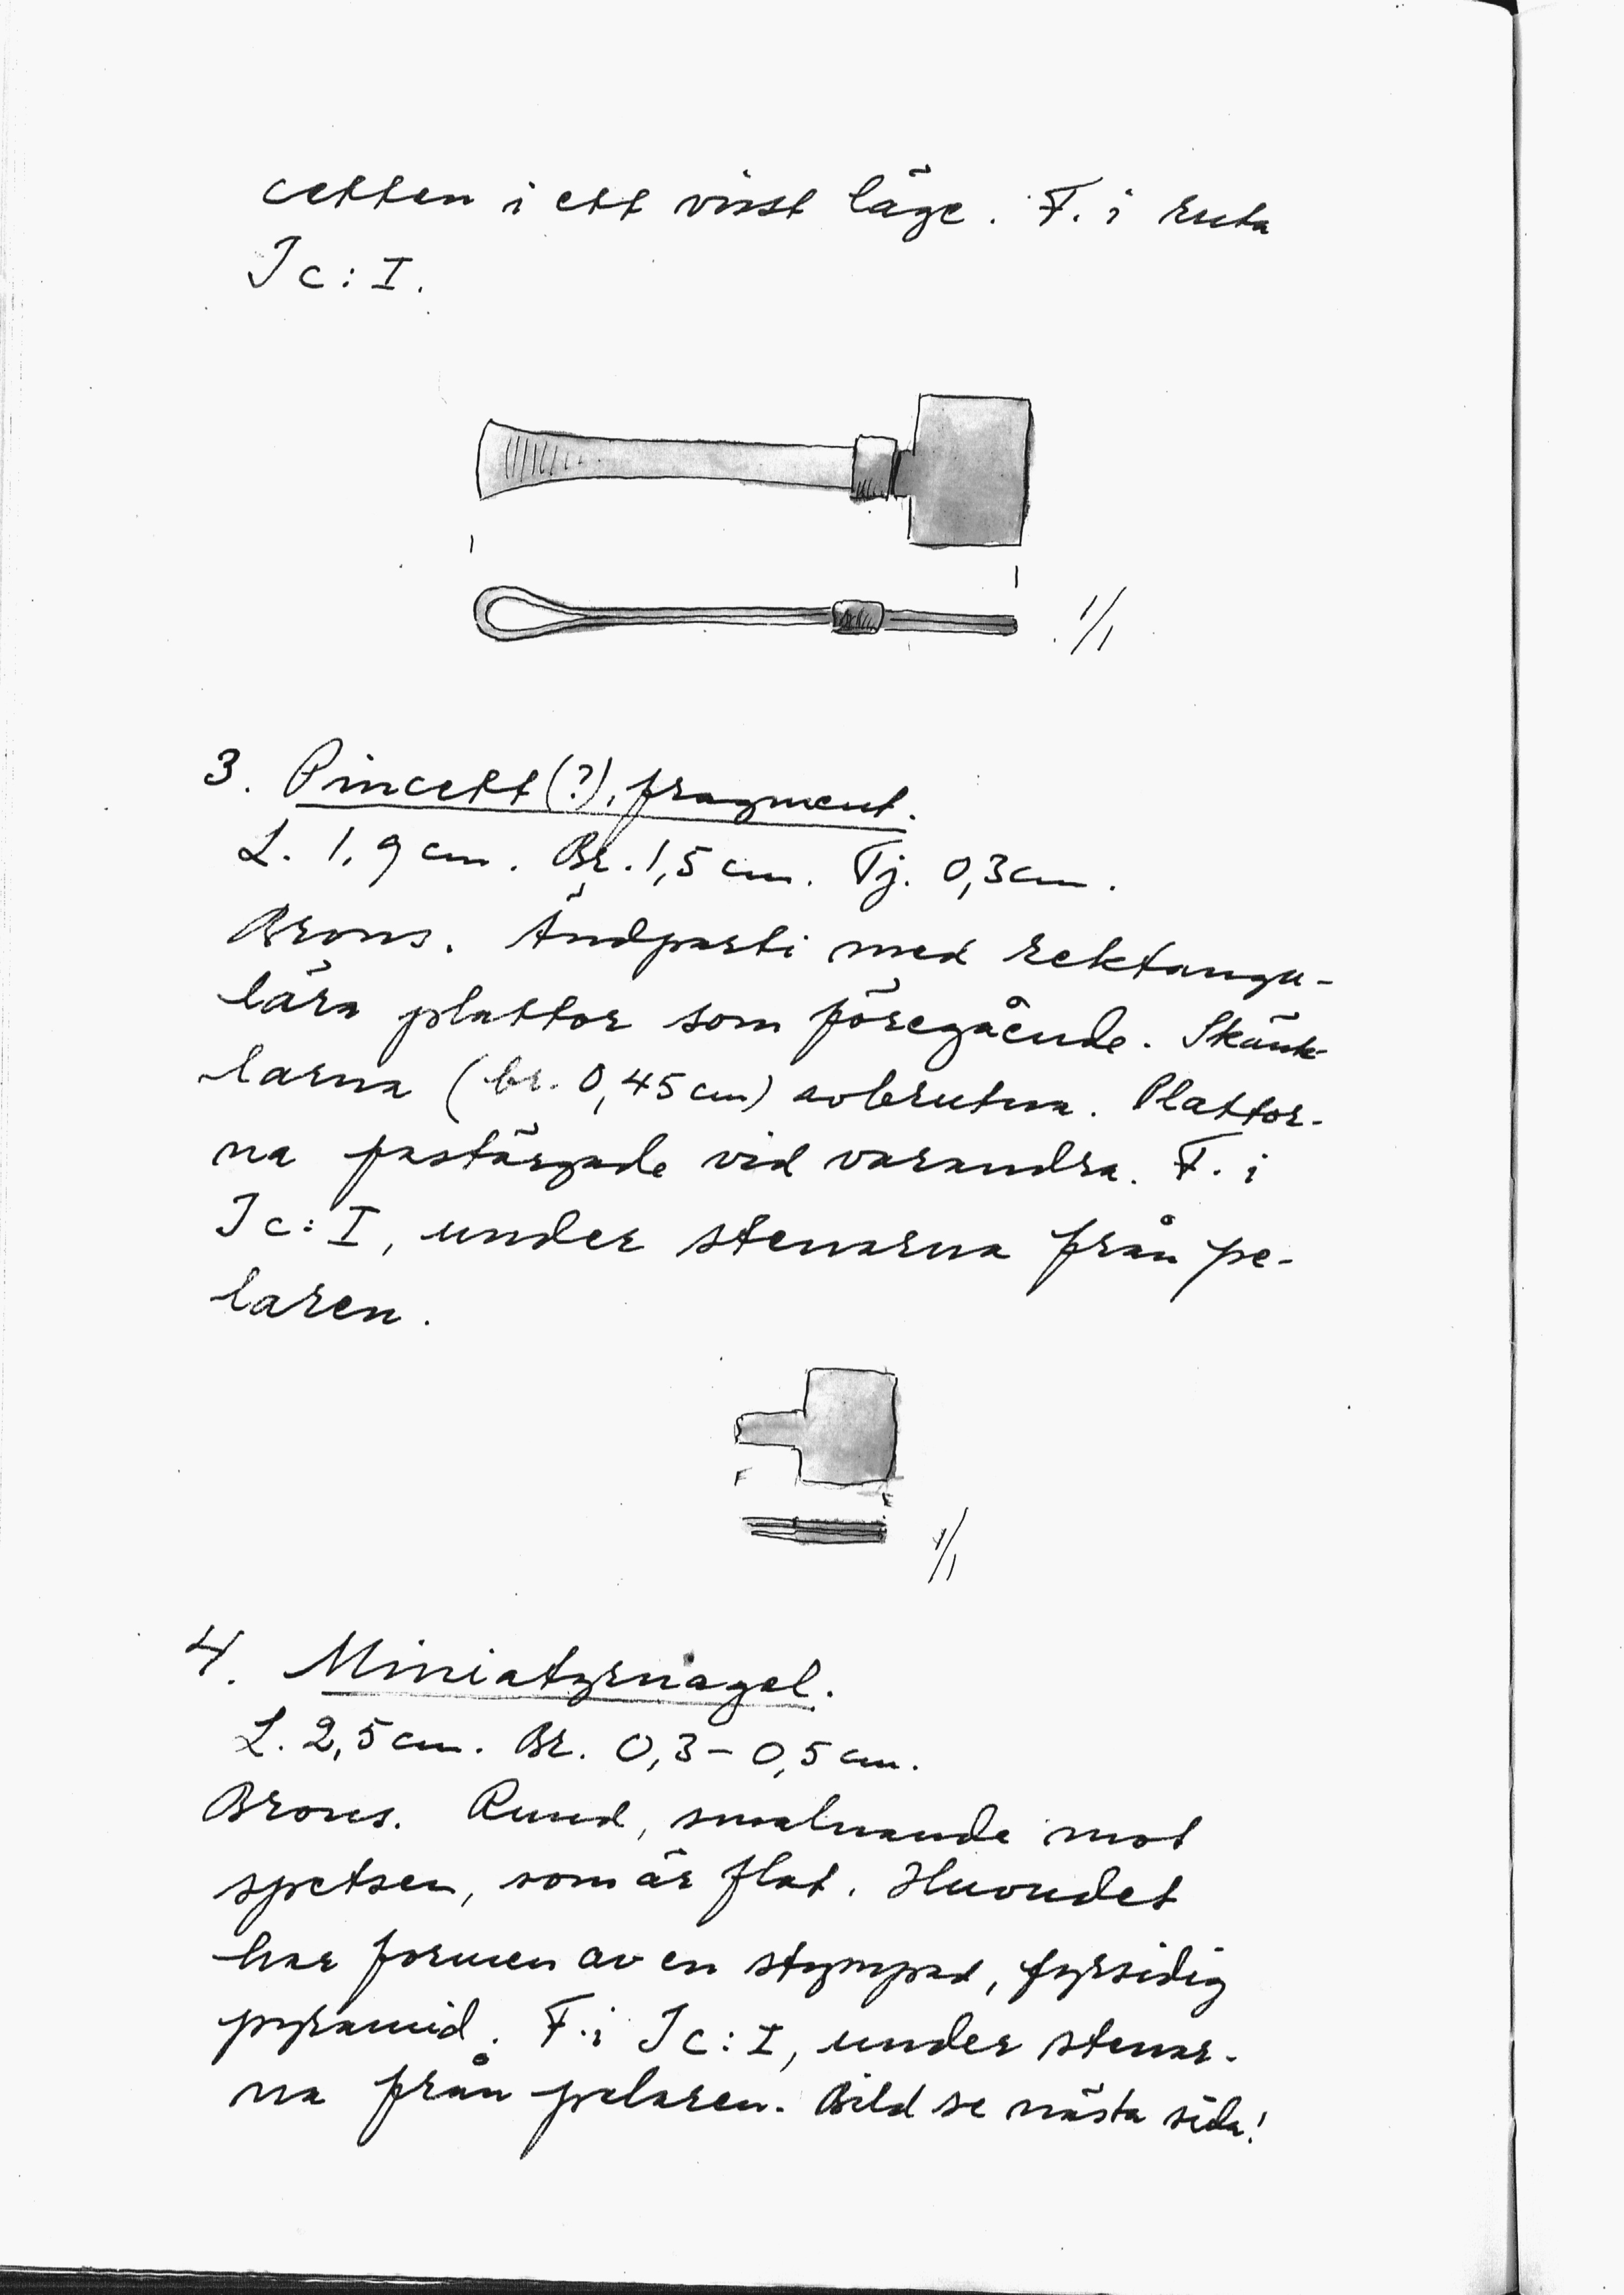 cetten i ett visst läge. F. i ruta
Jc: I.
1/1
3. Pincett(?), fragment.
L. 1,9 cm. Br. 1,5 cm. Tj. 0,3 cm.
Brons. Ändparti med rektangu-
lära plattor som föregående. Skänk-
larna (br. 0,45 cm) avbrutna. Plattor-
na fastärgade vid varandra. F. i
Jc: I, under stenarna från pe-
laren.
1/1
4. Miniatyrnagel.
L. 2,5 cm. Br. 0,3-0,5 cm.
Brons. Rund, smalnande mot
spetsen, som är flat. Huvudet
har formen av en stympad, fyrsidig
pyramid. F. i Jc: I, under stenar-
na från pelaren. Bild se nästa sida!